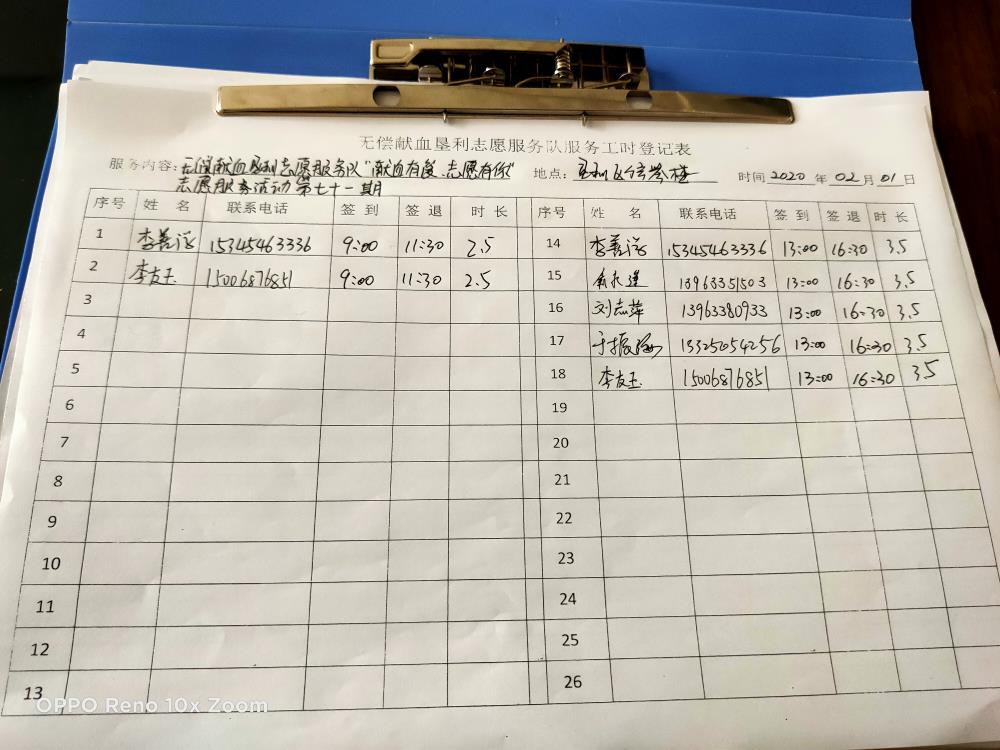 无偿献血垦利志愿服务队服务工时登记表
服务内容：无偿献血垦利志愿服务队“献血有爱、志愿有你” 地点： 时间 2020 年 02 月 01 日
志愿服务活动第七十一期
序号 姓 名 联系电话 签 到 签 退 时 长 序号 姓 名 联系电话 签 到 签 退 时 长
1 李善 15345463336 9:00 11:30 2.5 14 李善 15345463336 13:00 16:30 3.5
2 李友玉 15006876851 9:00 11:30 2.5 15 13963351503 13:00 16:30 3.5
3 16 刘志萍 13963380933 13:00 16:30 3.5
4 17 于振海 15325054256 13:00 16:30 3.5
5 18 李友玉 15006876851 13:00 16:30 3.5
6 19
7 20
8 21
9 22
10 23
11 24
12 25
13 26
OPPO Reno 10x Zoom